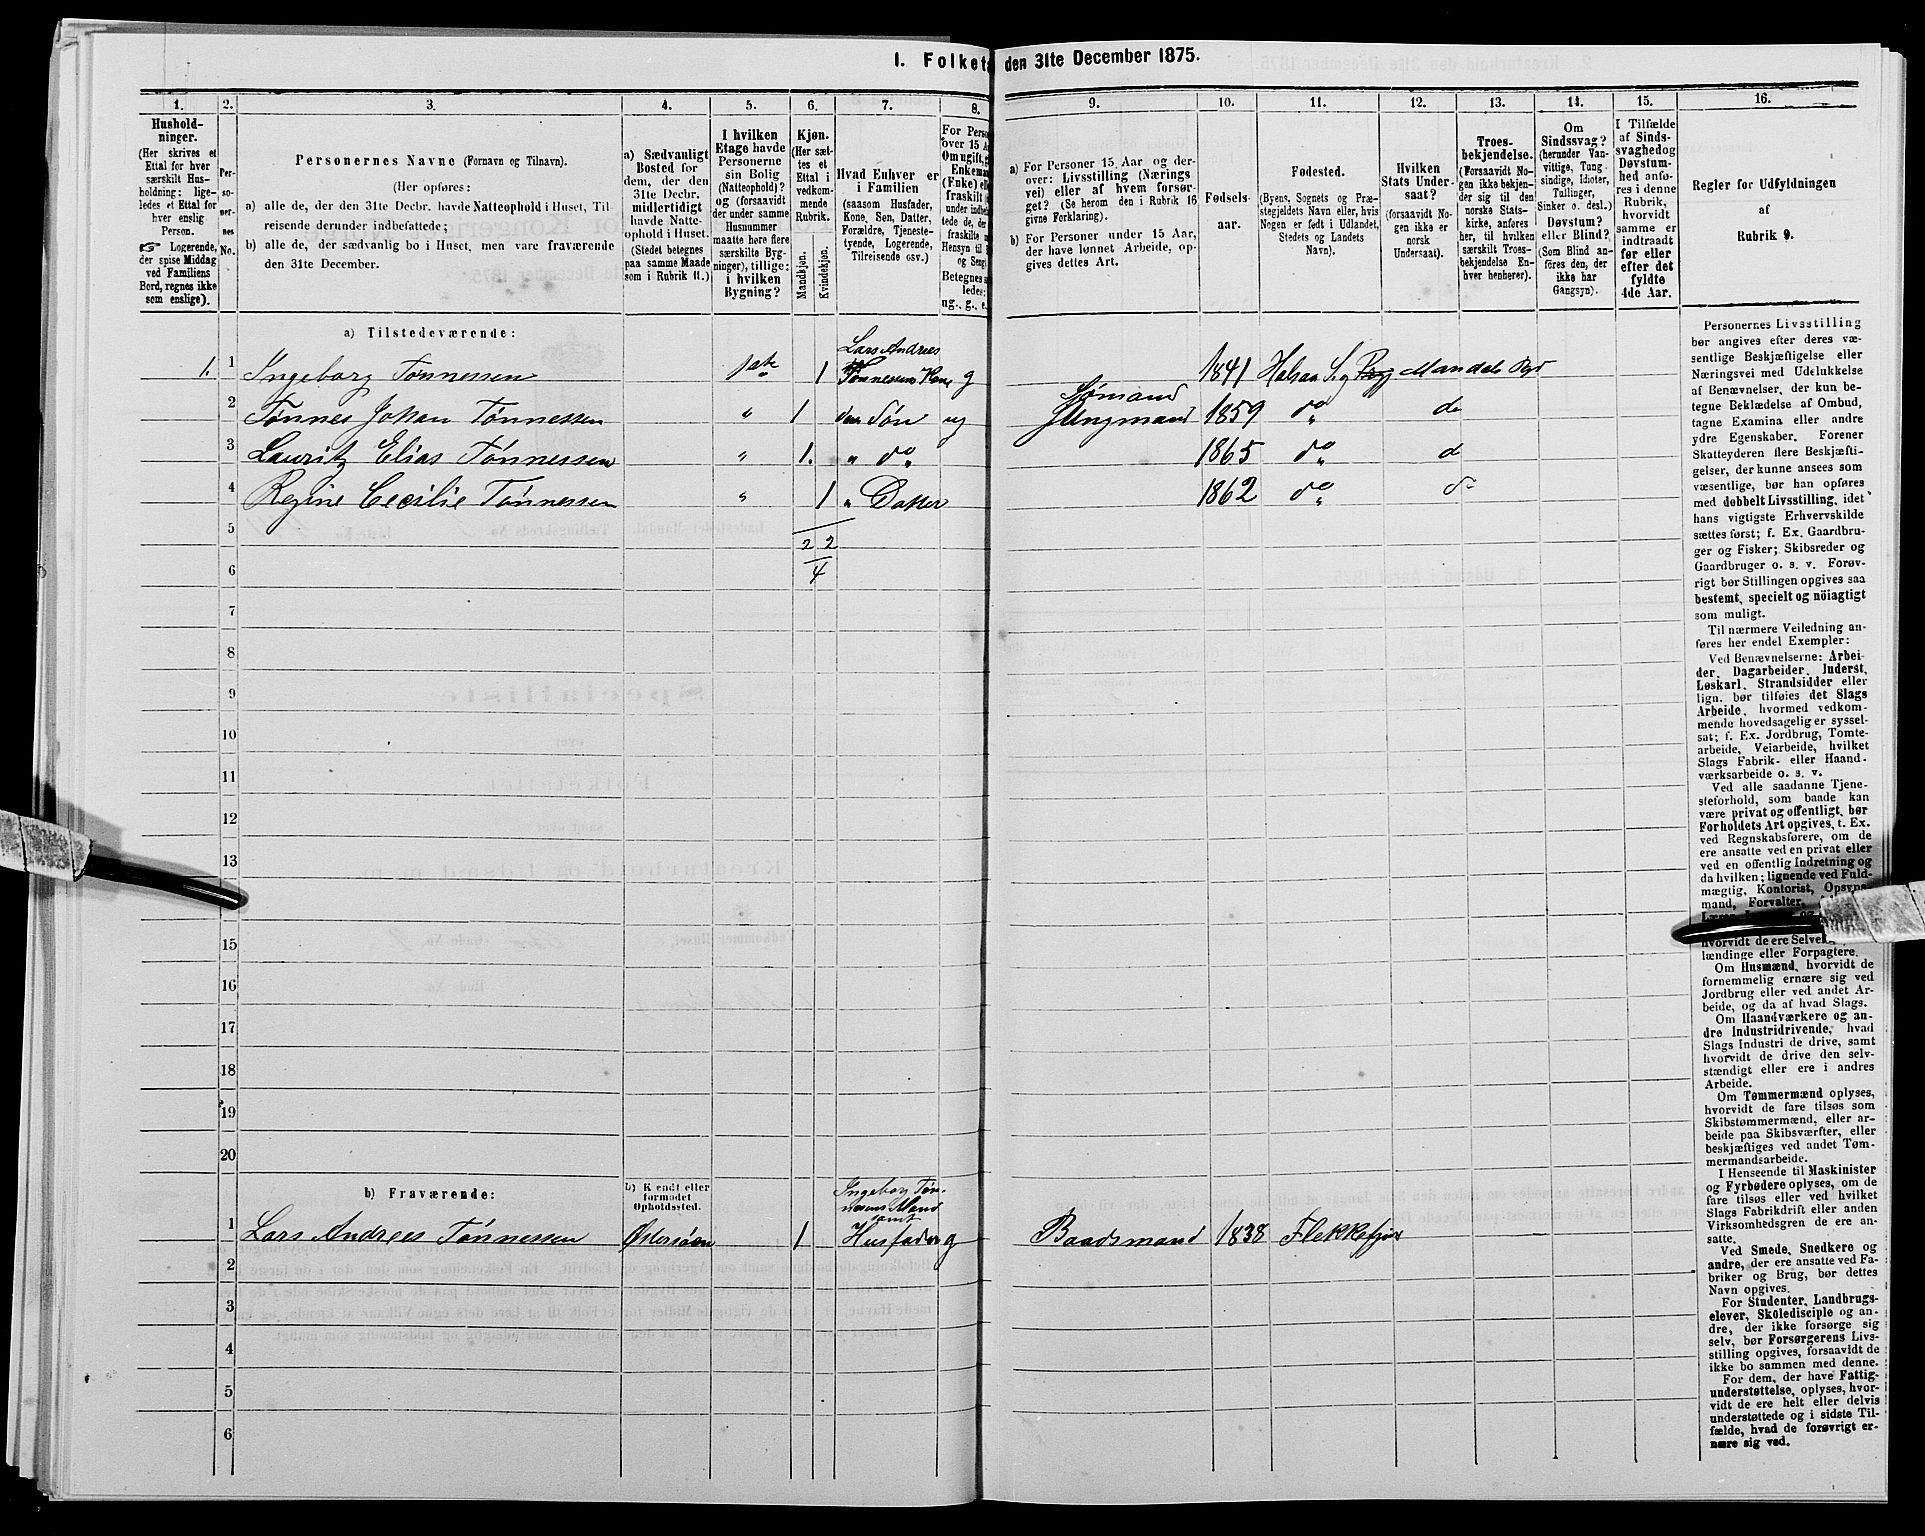 1. Folketa den 31te December 1875.
1. 2. 3. 4. 5. 6. 7. 8. 9. 10. 11. 12. 13. 14. 15. 16.
Hushold-
ninger.
(Her skrives et
Ettal for hver
særskilt Hus-
holdning; lige-
ledes et Ettal for
hver enslig
Person.
☞ Logerende,
der spise Middag
ved Familiens
Bord, regnes ikke
som enslige).
Per-
so-
ner-
nes
No.
Personernes Navne (Fornavn og Tilnavn).
(Her opføres:
a) alle de, der den 31te Decbr. havde Natteophold i Huset, Til-
reisende derunder indbefattede;
b) alle de, der sædvanlig bo i Huset, men vare fraværende
den 31te December.
a) Sædvanligt
Bosted for
dem, der den
31te Decbr.
midlertidigt
havde Natte-
ophold i Huset.
(Stedet betegnes
paa samme Maade
som i Rubrik 11.)
I hvilken
Etage havde
Personerne
sin Bolig
(Natteophold)?
og (forsaavidt
der under samme
Husnummer
maatte høre flere
særskilte Byg-
ninger), tillige:
i hvilken
Bygning?
Kjøn.
(Her sæt-
tes et
Ettal i
vedkom-
mende
Rubrik.
Mandkjøn.
Kvindekjøn.
Hvad Enhver er
i Familien
(saasom Husfader,
Kone, Søn, Datter,
Forældre, Tjeneste-
tyende, Logerende,
Tilreisende osv.)
For Perso
over 15 Aa
Om ugift, g
Enkema
(Enke) el
fraskilt
under indbe
tede de, de
fraskilte m
Hensyn til
og Seng
Betegnes s
ledes:
ug., g., e.
a) For Personer 15 Aar og der-
over: Livsstilling (Nærings
vei) eller af hvem forsør-
get? (Se herom den i Rubrik 16
givne Forklaring).
b) For Personer under 15 Aar,
der have lønnet Arbeide, op-
gives dettes Art.
Fødsels-
aar.
Fødested.
(Byens, Sognets og Præ-
stegjeldets Navn eller, hvis
Nogen er født i Udlandet,
Stedets og Landets
Navn).
Hvilken
Stats Under-
saat?
(forsaavidt No-
gen ikke er
norsk
Undersaat).
Troes-
bekjendelse.
(Forsaavidt No-
gen ikke bekjen-
der sig til den
norske Stats-
kirke, anføres
her, til hvilken
særskilte Troes-
bekjendelse En-
hver henhører).
Om
Sindssvag?
(herunder Van-
vittige, Tung-
sindige, Idioter,
Tullinger,
Sinker o. desl.)
Døvstum?
eller Blind?
(Som Blind an-
føres den, der
ikke har
Gangsyn).
I Tilfælde
af Sinds-
svaghed og
Døvstum-
hed anfø-
res i denne
Rubrik,
hvorvidt
samme er
indtraadt
før eller
efter det
fyldte
4de Aar.
Regler for Udfyldningen
af
Rubrik 9.
a) Tilstedeværende:
Lars Andrees
1. 1 Ingeborg Tønnessen 1ste 1 Tønnessens Kone g 1841 Halsaa S. og Mandals
Sømand
2 Tønnes Johan Tønnessen " 1 Søn ug Jungmand 1859 do do
3 Lauritz Elias Tønnessen " 1. " do 1865 do d
4 Regine Cecilie Tønnessen " 1 " Datter 1862 do
5 2 2
6 4
7
8
9
10
11
12
13
15
16
17
18
19
20
b) Fraværende:
b) Kjendt eller
formodet
Opholdssted.
Ingeborg Tøn-
nesens Mand
samt
1 Lars Andrees Tønnessen Østersøen 1 Husfader g Baadsmand 1838 Flekkefjord
2
3
4
5
6
Personernes Livsstilling
bør angives efter deres væ-
sentlige Beskjæftigelse eller
Næringsvei med Udelukkelse
af Benævnelser, der kun be-
tegne Beklædelse af Ombud,
tagne Examina eller andre
ydre Egenskaber. Forener
Skatteyderen flere Beskjæfti-
gelser, der kunne ansees som
væsentlige, bør han opføres
med dobbelt Livsstilling, idet
hans vigtigste Erhvervskilde
sættes først; f. Ex. Gaardbru-
ger og Fisker; Skibsreder og
Gaardbruger o. s. v. Forøv-
rigt bør Stillingen opgives saa
bestemt, specielt og nöiagtigt
som muligt.
Til nærmere Veiledning an-
føres her endel Exempler:
Ved Benævnelserne: Arbei-
der, Dagarbeider, Inderst,
Løskarl, Strandsidder eller
lign. bør tilføies det Slags
Arbeide, hvormed vedkom-
mende hovedsagelig er syssel-
sat; f. Ex. Jordbrug, Tomte-
arbeide, Veiarbeide, hvilket
Slags Fabrik- eller Haand-
værksarbeide o. s. v.
Ved alle saadanne Tjene-
steforhold, som baade kan
være privat og offentligt, bør
Forholdets Art opgives, t. Ex.
ved Regnskabsførere, om de
ere ansatte ved en privat eller
ved en offentlig Indretning og
da hvilken; lignende ved Fuld-
mægtig, Kontorist, Opsyns-
mand, Forvalter,
hvorvidt de ere Selvei
lændinge eller Forpagtere.
Om Husmænd, hvorvidt de
fornemmelig ernære sig ved
Jordbrug eller ved andet Ar-
beide, og da af hvad Slags.
Om Haandværkere og an-
dre Industridrivende, hvad
Slags Industri de drive, samt
hvorvidt de drive den selv-
stændigt eller ere i andres
Arbeide.
Om Tømmermænd oplyses,
hvorvidt de fare tilsøs som
Skibstømmermænd, eller ar-
beide paa Skibsværfter, eller
beskjæftiges ved andet Tøm-
mermandsarbeide.
I Henseende til Maskinister
og Fyrbødere oplyses, om de
fare tilsøs eller ved hvilket
Slags Fabrikdrift eller anden
Virksomhedsgren de ere an-
satte.
Ved Smede, Snedkere og
andre, der ere ansatte ved Fa-
briker og Brug, bør dettes
Navn opgives.
For Studenter, Landbrugs-
elever, Skoledisciple og an-
dre, der ikke forsørge sig
selv, bør Forsørgerens Livs-
stilling opgives, forsaavidt de
ikke bo sammen med denne.
For dem, der have Fattig-
understøttelse, oplyses, hvor-
vidt de ere helt eller delvis
understøttede og i sidste Til-
fælde, hvad de forøvrigt er-
nære sig ved.